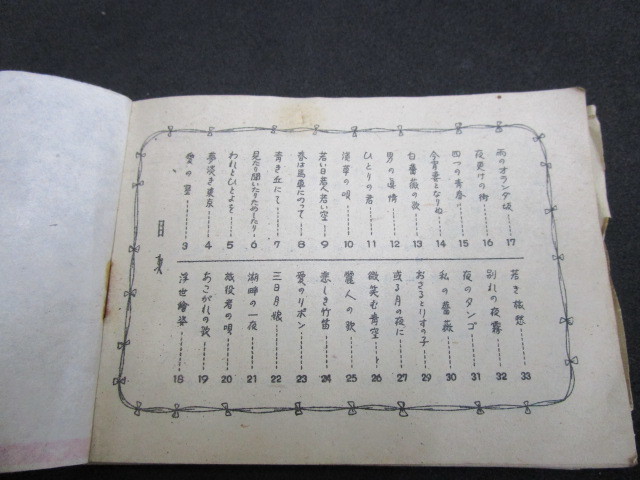 目次
愛の 3
夢淡き東京 4
われとひと 5
見たり聞いたりためしたり 6
青き丘にて 7
春は馬車にのって 8
若い日若い人若い空 9
浅草の唄 10
ひとりの君 11
男の 情 12
白薔薇の歌 13
今宵妻となりぬ 14
四つの青春 15
夜更けの街 16
雨のオランダ坂 17
浮世繪姿 18
あこがれの歌 19
旅役者の唄 20
湖畔の一夜 21
三日月娘 22
愛のリボン 23
悲しき竹笛 24
麗人の歌 25
微笑む青空 26
或る月の夜に 27
おさるとりすの子 29
私の薔薇 30
夜のタンゴ 31
別れの夜霧 32
若き旅愁 33